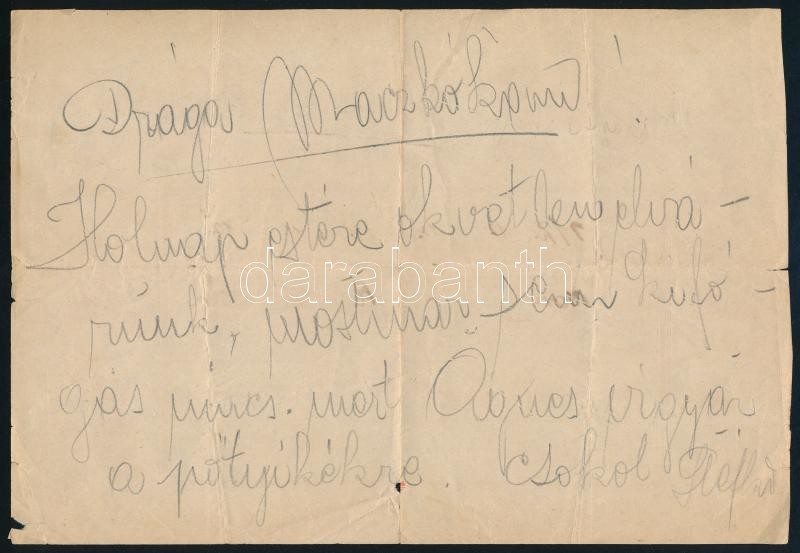 Drága Maczkókám!
Holnap estére okvetlen elvá-
runk, mostmár semi kifo-
gás nincs. mert Ágnes vigyáz
a pötyikékre. Csokol
darabanth.com